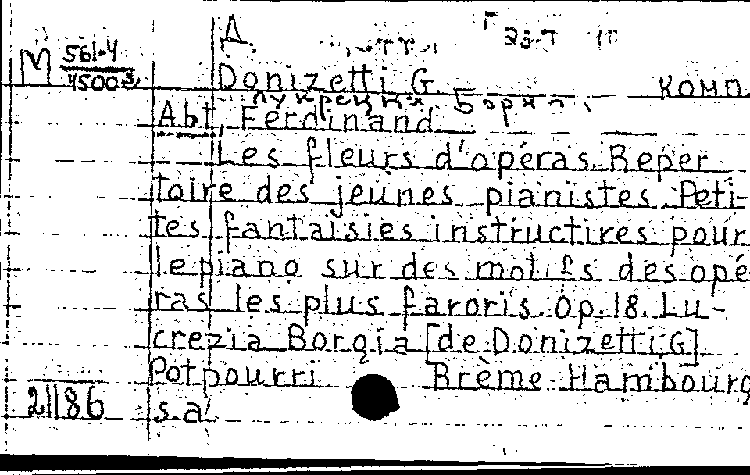 Д.
М 561-4
4500з
Donizetti G. комп.
Лукреция Борпа.
Abt, Ferdinand.
Les fleurs d'opéras. Reper
toire des jeunes pianistes. Peti-
tes fantaisies instructires pour
le piano sur des motifs des opé
ras les plus faroris. Op. 18. Lu-
crezia Borgia [de Donizetti, G]
Potpourri Brème-Hambourg
21186 s.a.